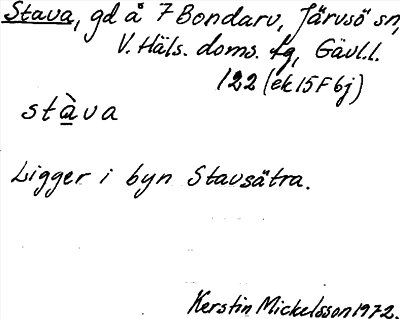 Stava, gd å 7 Bondarv, Järvsö sn,
V. Häls. doms. tg, Gävl.l.
122 (ek 15F6j)
stà̲va
Ligger i byn Stavsätra.
Kerstin Mickelsson 1972.